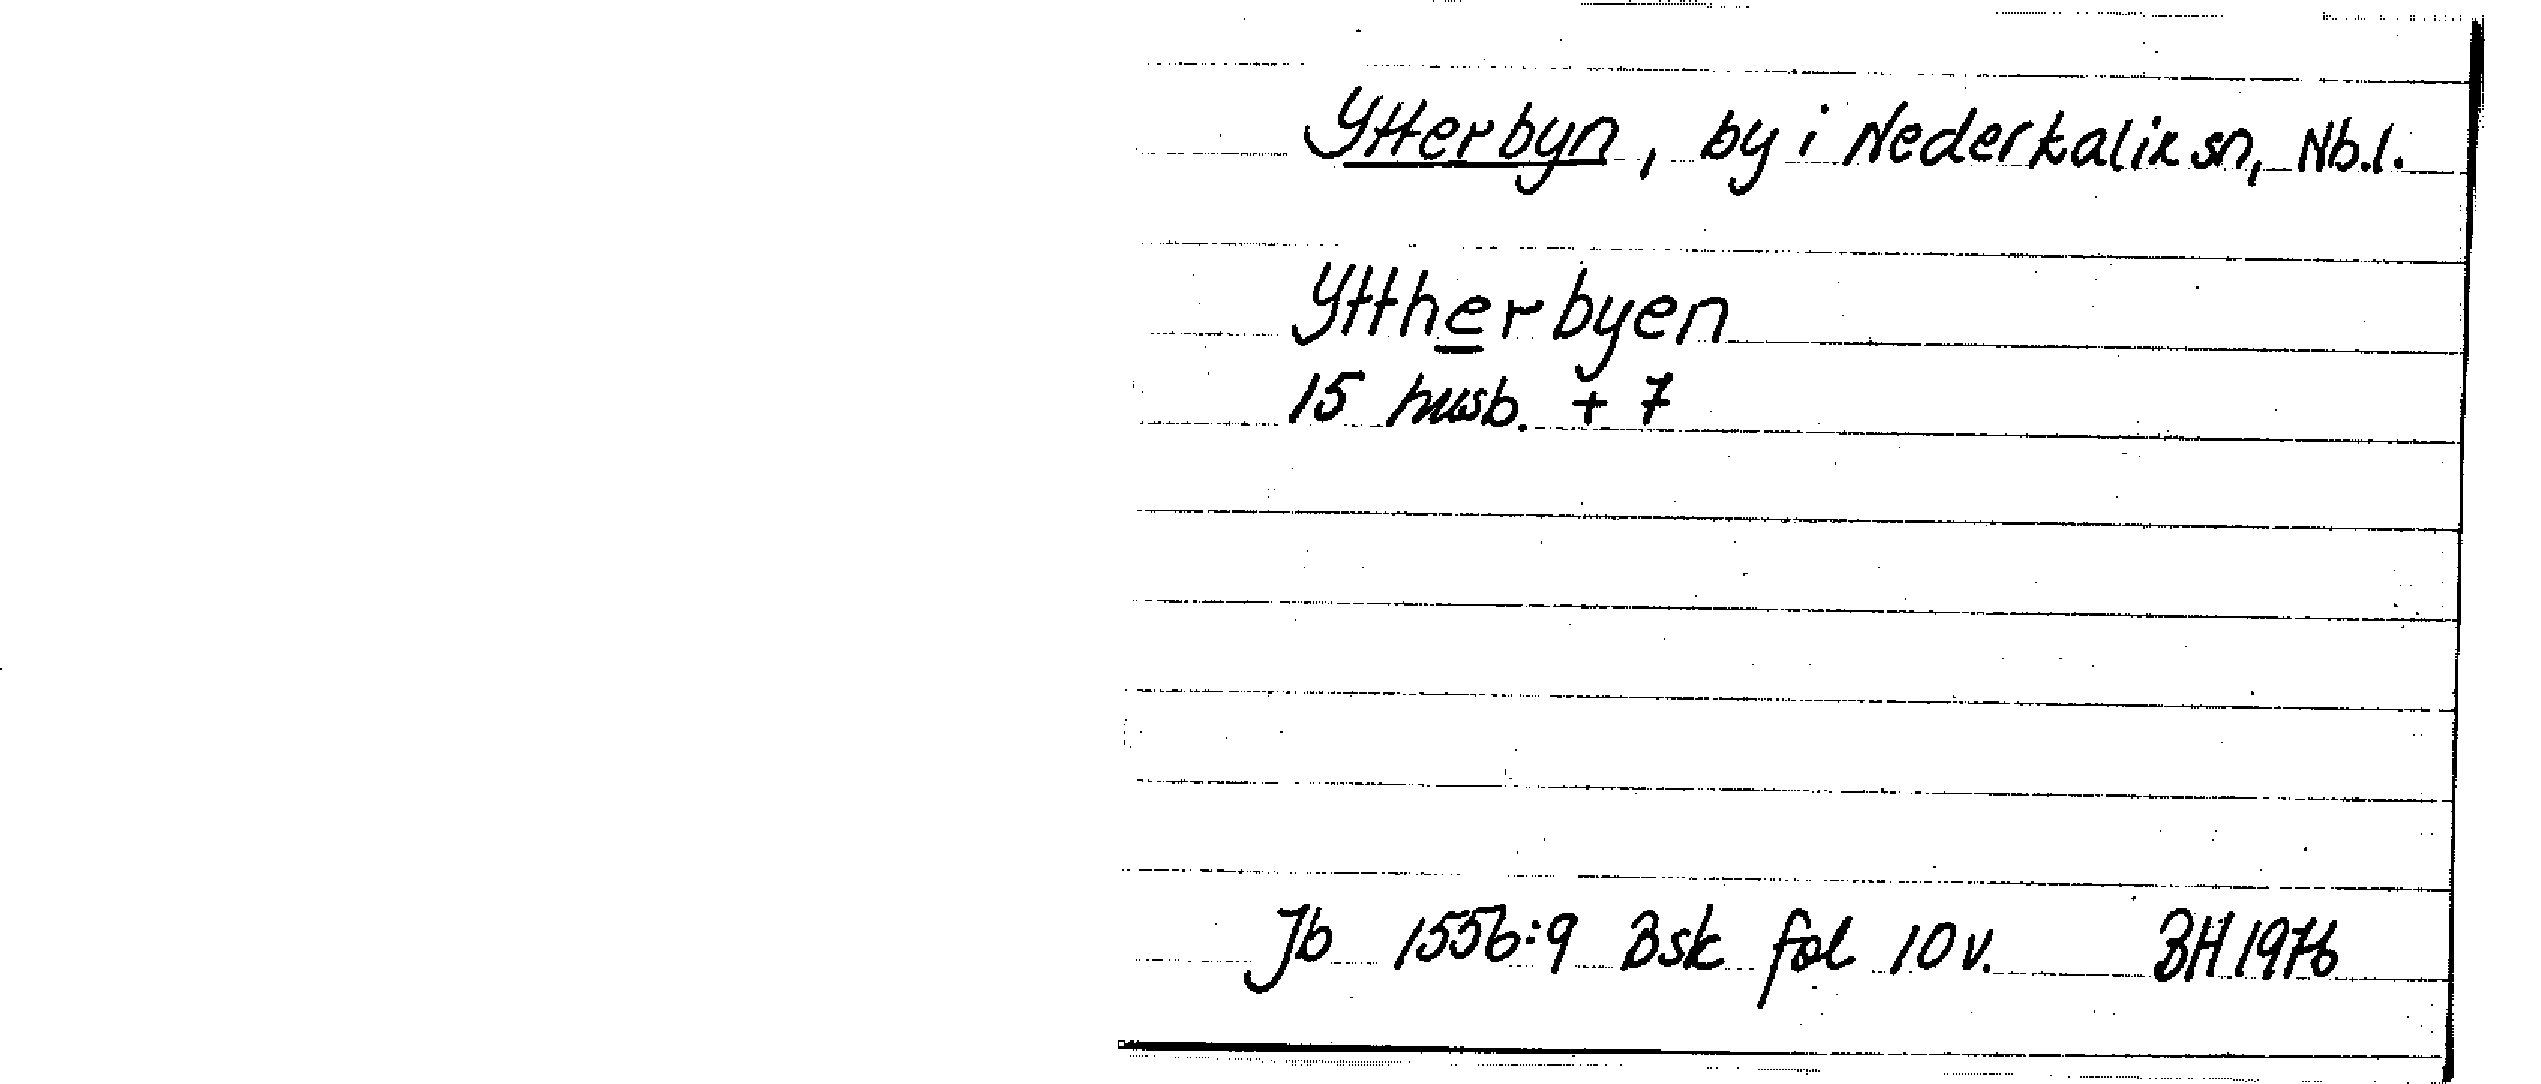 Ytterbyn, by i Nederkalix sn, Nb.l.
Yttherbyen
15 husb. + 7
Jb 1556:9 Bsk fol 10 v. BH 1976